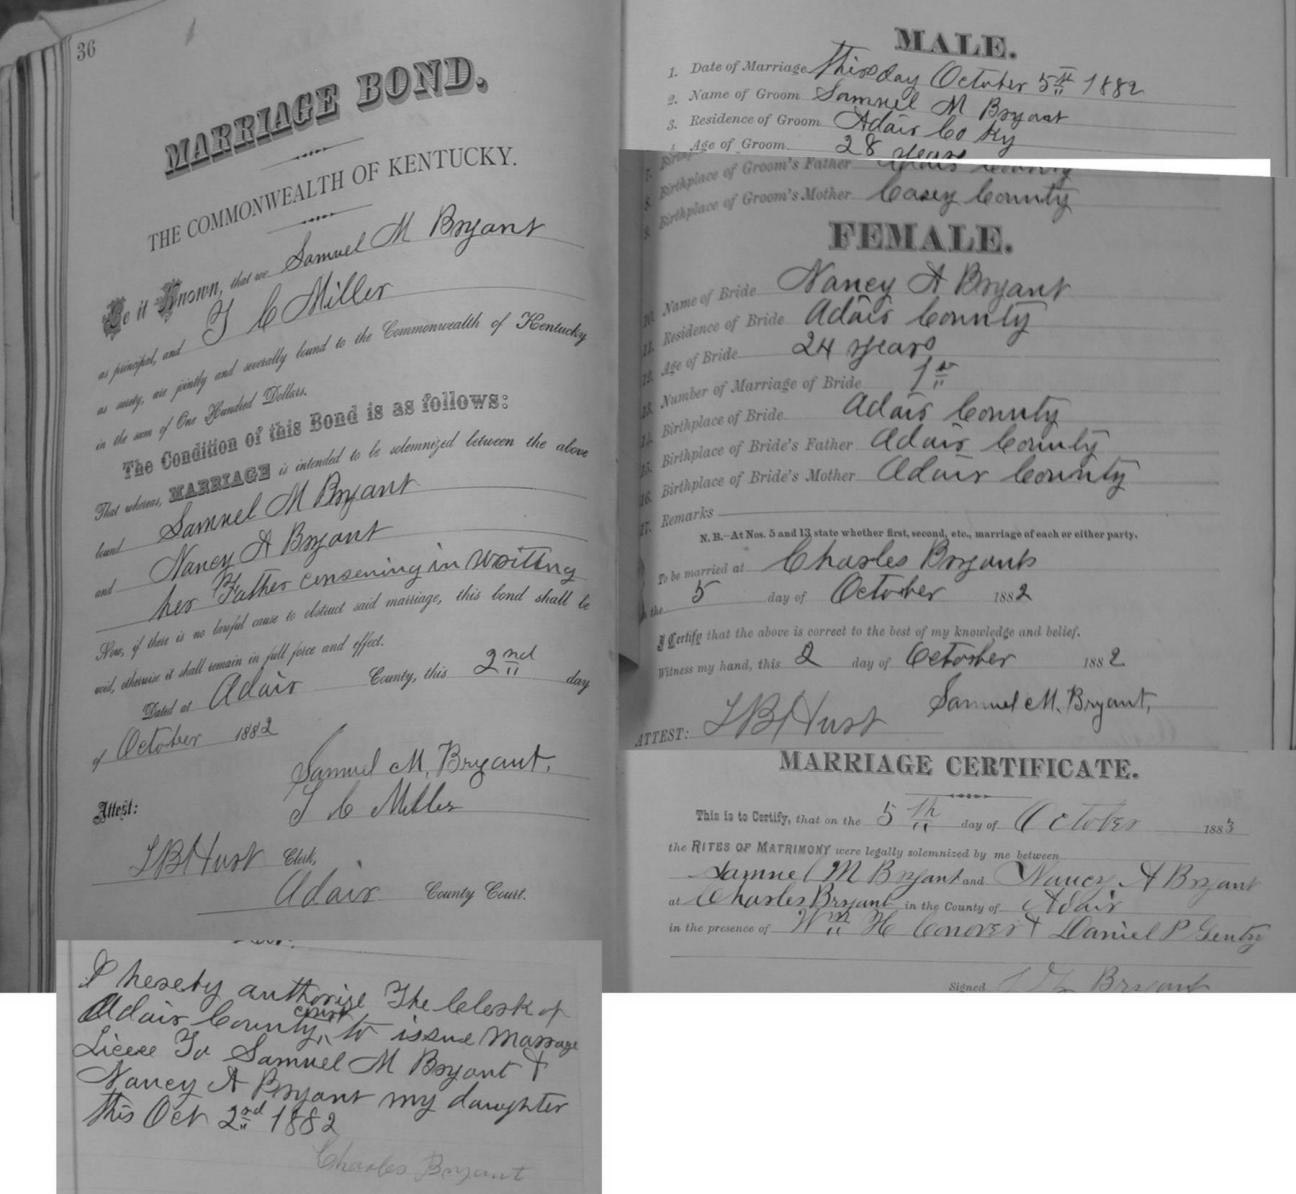 36
MARRIAGE BOND.
THE COMMONWEALTH OF KENTUCKY.
Be it Known, that we Samuel M Bryant
as principal, and T C Miller
as surety, are jointly and severally bound to the Commonwealth of Kentucky
in the sum of One Hundred Dollars.
The Condition of this Bond is as follows:
That whereas, MARRIAGE is intended to be solemnized between the above
bound Samuel M Bryant
and Nancy A Bryant
her Father consening in writing
Now, if there is no lawful cause to obstruct said marriage, this bond shall be
void, otherwise it shall remain in full force and effect.
Dated at Adair County, this 2nd day
of October 1882
Samuel M. Bryant.
T C Miller
Attest:
T B Hust Clerk,
Adair County Court.
I hereby authorize The Clerk of
Adair County court to issue Marrage
Licese To Samuel M Bryant &
Nancy A Bryant my daughter
this Oct 2nd 1882
Charles Bryant
MALE.
1. Date of Marriage Thirsday October 5th 1882
2. Name of Groom Samuel M Bryant
3. Residence of Groom Adair Co Ky
4. Age of Groom 28 years
Birthplace of Groom's Father County
Birthplace of Groom's Mother Casey County
FEMALE.
10. Name of Bride Nancy A Bryant
11. Residence of Bride Adair County
12. Age of Bride 24 years
13. Number of Marriage of Bride 1st
14. Birthplace of Bride Adair County
15. Birthplace of Bride's Father Adair County
16. Birthplace of Bride's Mother Adair County
17. Remarks
N. B.—At Nos. 5 and 13 state whether first, second, etc., marriage of each or either party.
To be married at Charles Bryants
the 5 day of October 1882
I Certify that the above is correct to the best of my knowledge and belief.
Witness my hand, this 2 day of October 1882
Samuel M. Bryant,
ATTEST: T B Hust
MARRIAGE CERTIFICATE.
This is to Certify, that on the 5th day of October 1883
the RITES OF MATRIMONY were legally solemnized by me between
Samuel M Bryant and Nancy A Bryant
at Charles Bryant in the County of Adair
in the presence of Wm H Conover & Daniel P Gentry
Signed Bryant